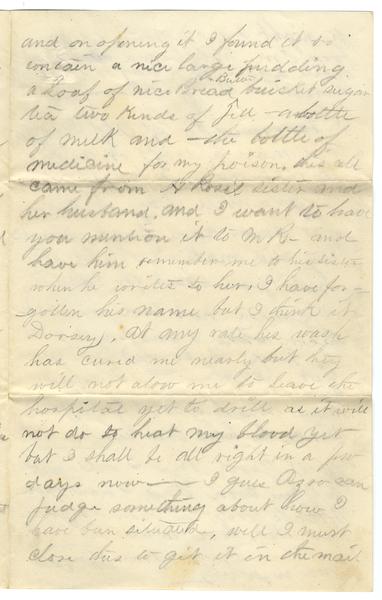 and on opening it I found it to
contain a nice large pudding
a Loaf of nice Bread Butter buiscet sugar
tea two kinds of Jell - a bottle
of milk and - the bottle of
medicine for my poison. this all
came from A Rosil sister and
her husband. and I want to have
you mention it to M K - and
have him remember me to his sister
when he writes to her, I have for-
gotten his name but I think it
Dorsey, at my rate his wash
has cured me nearly but they
will not alow me to leave the
hospital yet to drill as it will
not do to heat my blood yet
but I shall be all right in a few
days now — I gues Azro can
judge something about how I
have ben situated, will I must
close this to git it in the mail